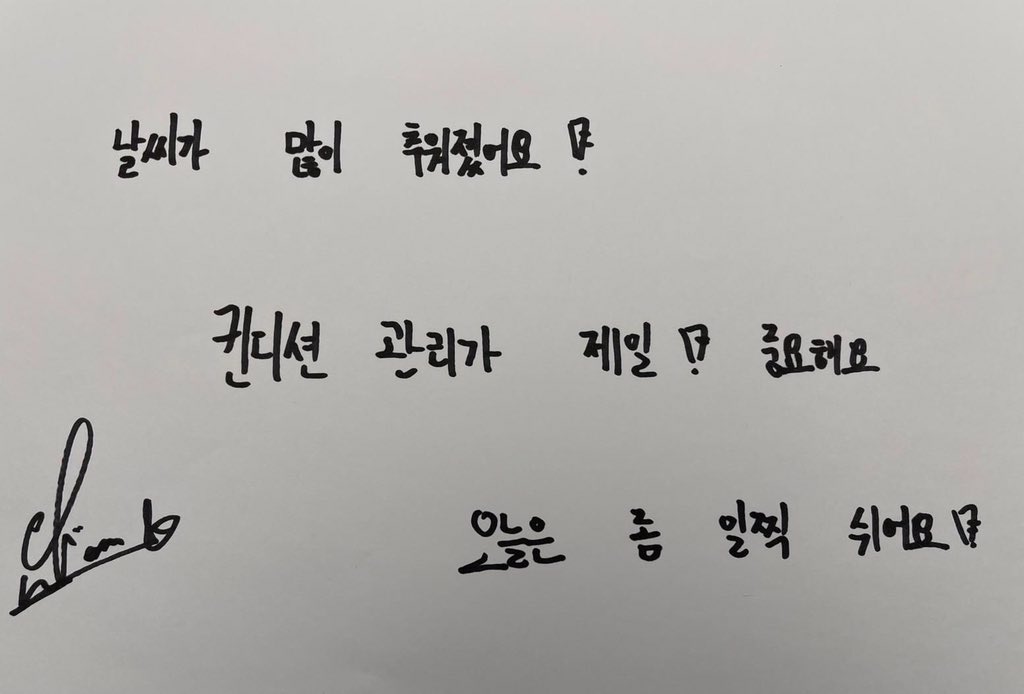 날씨가 많이 추워졌어요!
퀸디션 관리가 제일! 중요해요
오늘은 좀 일찍 쉬어요!